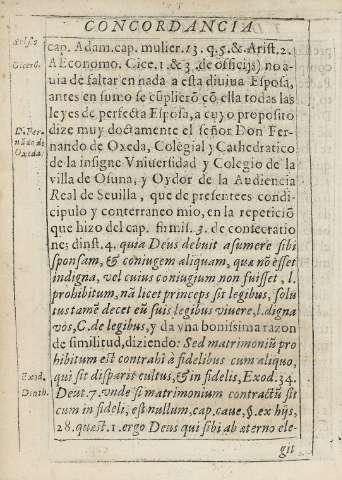 CONCORDANCIA
Arist.
cap. Adam. cap. mulier. 13. q. 5. & Arist. 2.
Cicerō.
AEconomo. Cice. 1. & 3. de officijs) no a-
uia de faltar en nada a esta diuiua Esposa,
antes en sumo se cūplierō cō ella todas las
leyes de perfecta Esposa, a cuyo proposito
D. Fer-
nādo de
Oxeda.
dize muy doctamente el señor Don Fer-
nando de Oxeda, Colegial y Cathedratico
de la insigne Vniuersidad y Colegio de la
villa de Osuna, y Oydor de la Audiencia
Real de Seuilla, que de presentees condi-
cipulo y conterraneo mio, en la repeticiō
que hizo del cap. firmis. 3. de consecratio
ne; dinst. 4. quia Deus debuit asumere sibi
sponsam, & coniugem aliquam, qua nō esset
indigna, vel cuius coniugium non fuisset, l.
prohibitum, nā licet princeps sit legibus, solu
tus tamē decet eū suis legibus viuere, l. digna
vos, C. de legibus, y da vna bonissima razon
de similitud, diziendo: Sed matrimoniū pro
hibitum est contrahi à fidelibus cum aliquo,
Exod.
qui sit disparis cultus, & in fidelis, Exod. 34.
Deut. 7. vnde si matrimonium contractū sit
cum in fideli, est nullum, cap. caue, §. ex hijs,
28. quæst. 1. ergo Deus qui sibi ab æterno ele-
git